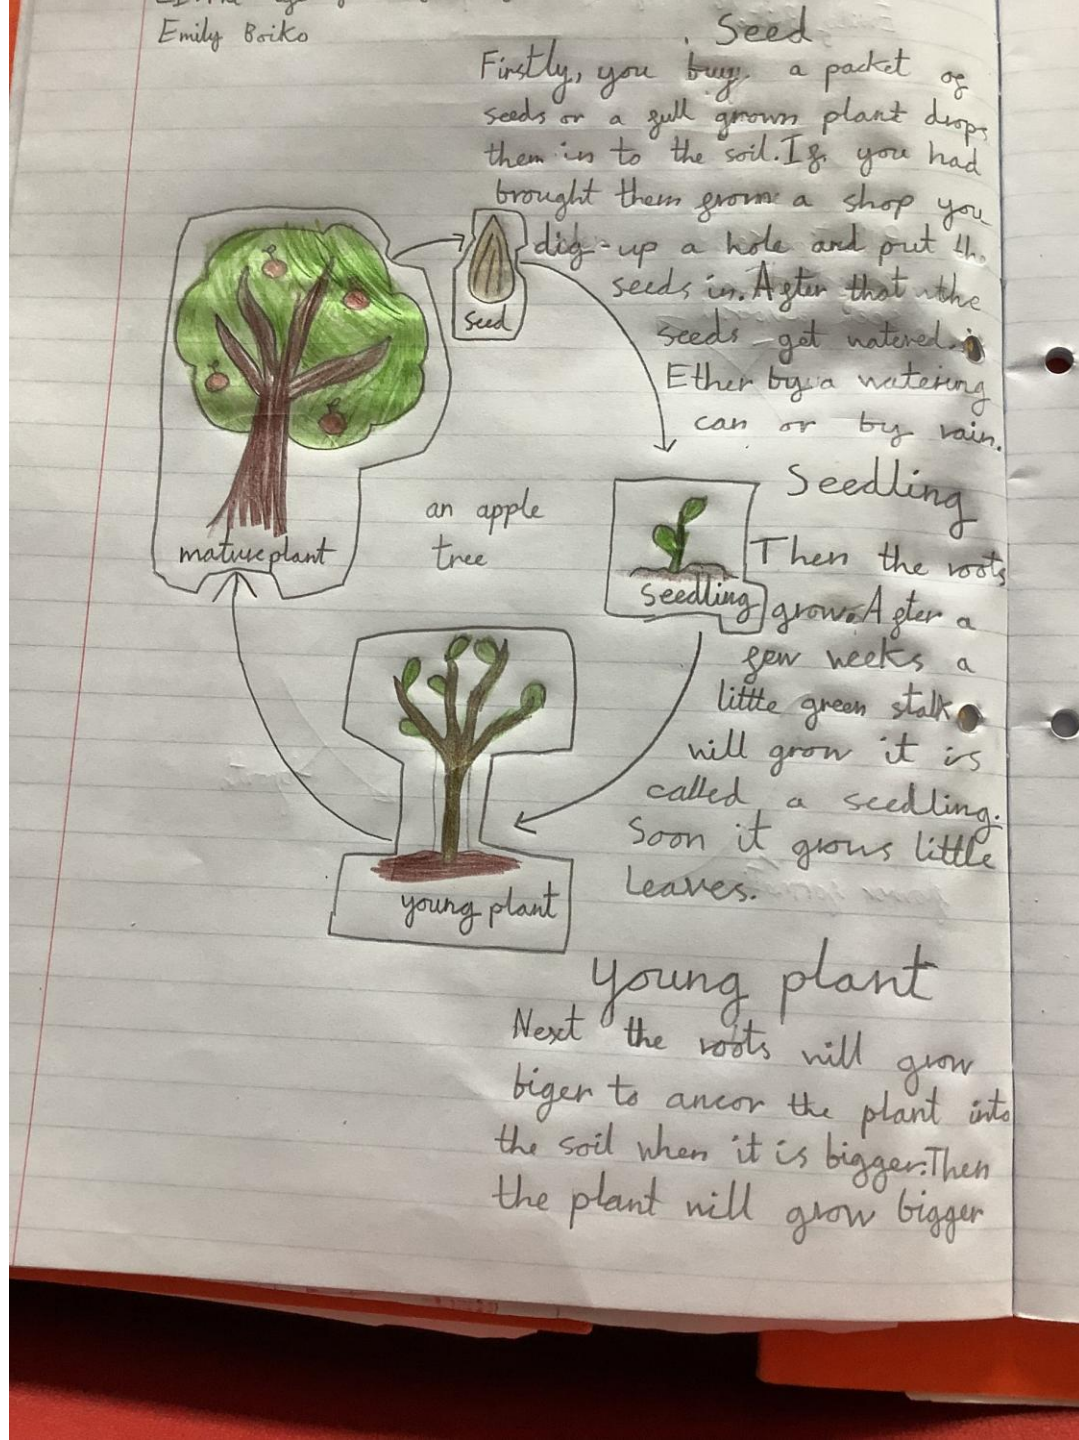 Emily Boiko
Seed
Firstly, you buy a packet of
seeds or a full grown plant drops
them in to the soil. If you had
brought them from a shop you
dig-up a hole and put the
seeds in. After that the
seeds get watered.
Ether by a watering
can or by rain.
seed
mature plant
an apple
tree
Seedling
Then the roots
grow. After a
few weeks a
little green stalk
will grow it is
called a seedling.
Soon it grows little
Leaves.
seedling
young plant
young plant
Next the roots will grow
biger to ancor the plant into
the soil when it is bigger. Then
the plant will grow bigger